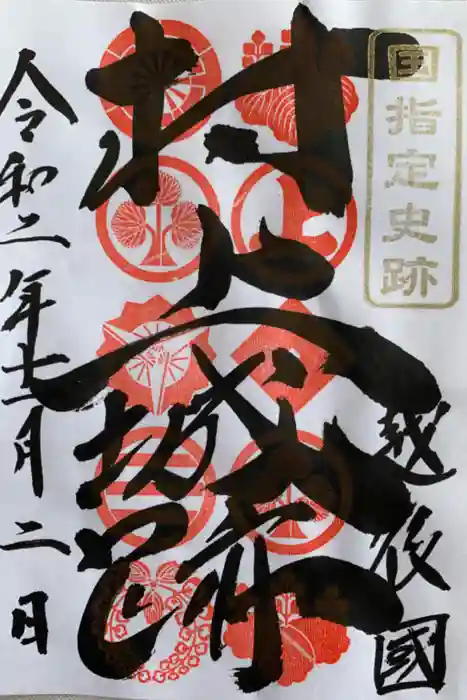 国指定史跡
越後國
村上城跡
令和二年十一月二日